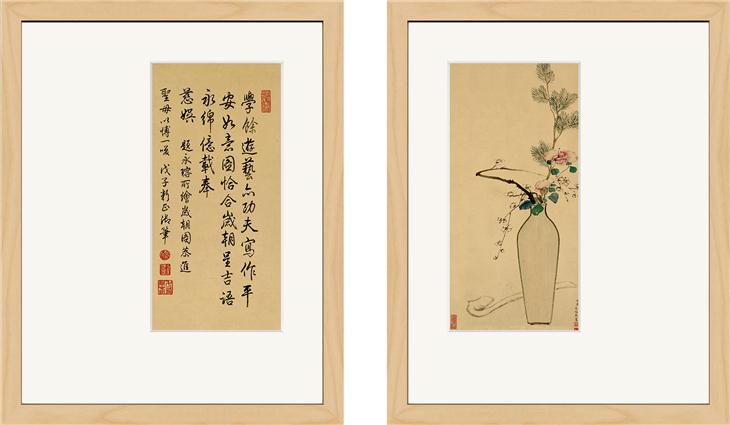 學餘遊藝亦功夫寫作平
安如意圖恰合歲朝呈吉語
永綿億載奉
慈娛 題永瑢所繪歲朝圖恭進
聖母以博一咲 戊子新正御筆